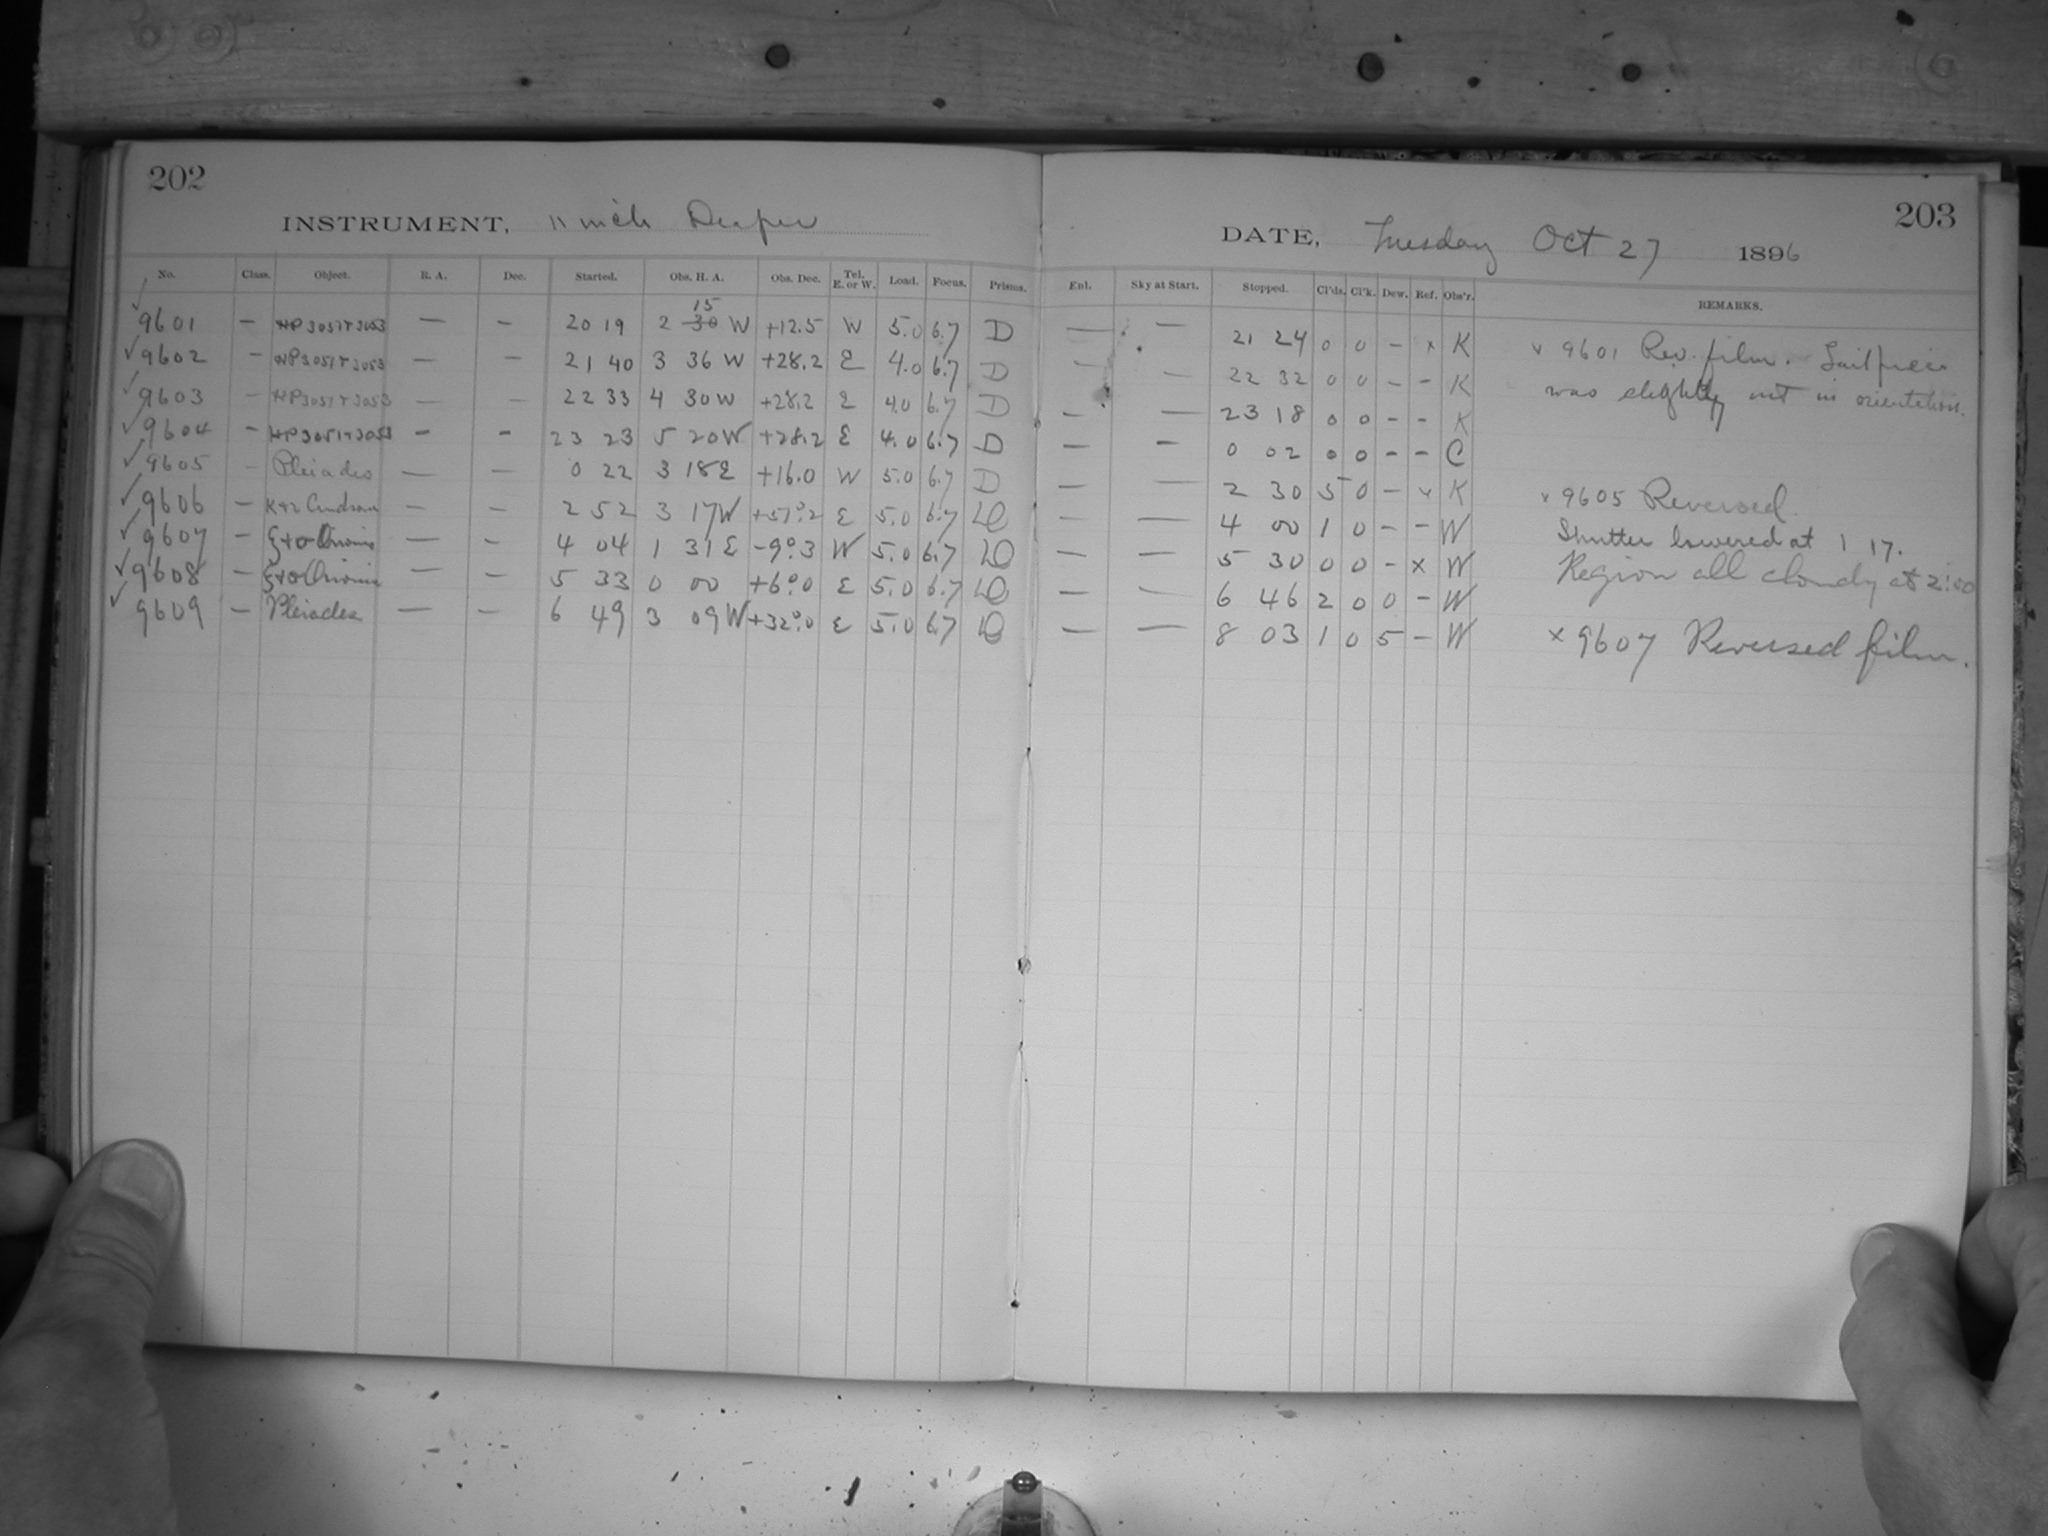 202
INSTRUMENT, 11 inch Draper
No. Class. Object. R. A. Dec. Started. Obs. H. A. Obs. Dec. Tel. E. or W. Load. Focus. Prisms.
15
✓ 9601 — HP 3051+3053 — — 20 19 2 30 W +12.5 W 5.0 6.7 D
✓ 9602 — HP 3051+3053 — — 21 40 3 36 W +28.2 E 4.0 6.7 D
✓ 9603 — HP 3051+3053 — — 22 33 4 30 W +28.2 E 4.0 6.7 D
✓ 9604 — HP 3051+3053 — — 23 23 5 20 W +28.2 E 4.0 6.7 D
✓ 9605 — Pleiades — — 0 22 3 18 E +16.0 W 5.0 6.7 D
✓ 9606 — — — 2 52 3 17 W +57°.2 E 5.0 6.7 D
✓ 9607 — ξ+σ Orionis — — 4 04 1 31 E -9°.3 W 5.0 6.7 D
✓ 9608 — ξ+σ Orionis — — 5 33 0 00 +6°.0 E 5.0 6.7 D
✓ 9609 — Pleiades — — 6 49 3 09 W +32°.0 E 5.0 6.7 D
203
DATE, Tuesday Oct 27 1896
Enl. Sky at Start. Stopped. Cl'ds. Cl'k. Dew. Ref. Obs'r. REMARKS.
— — 21 24 0 0 - x K x 9601 Rev. film. Tailpiece
— — 22 32 0 0 - - K was slightly out in orientation.
— — 23 18 0 0 - - K
— — 0 02 0 0 - - C
— — 2 30 5 0 - x K x 9605 Reversed.
— — 4 00 1 0 - - W Shutter lowered at 1 17.
— — 5 30 0 0 - x W Region all cloudy at 2:00
— — 6 46 2 0 0 - W
— — 8 03 1 0 5 - W x 9607 Reversed film.